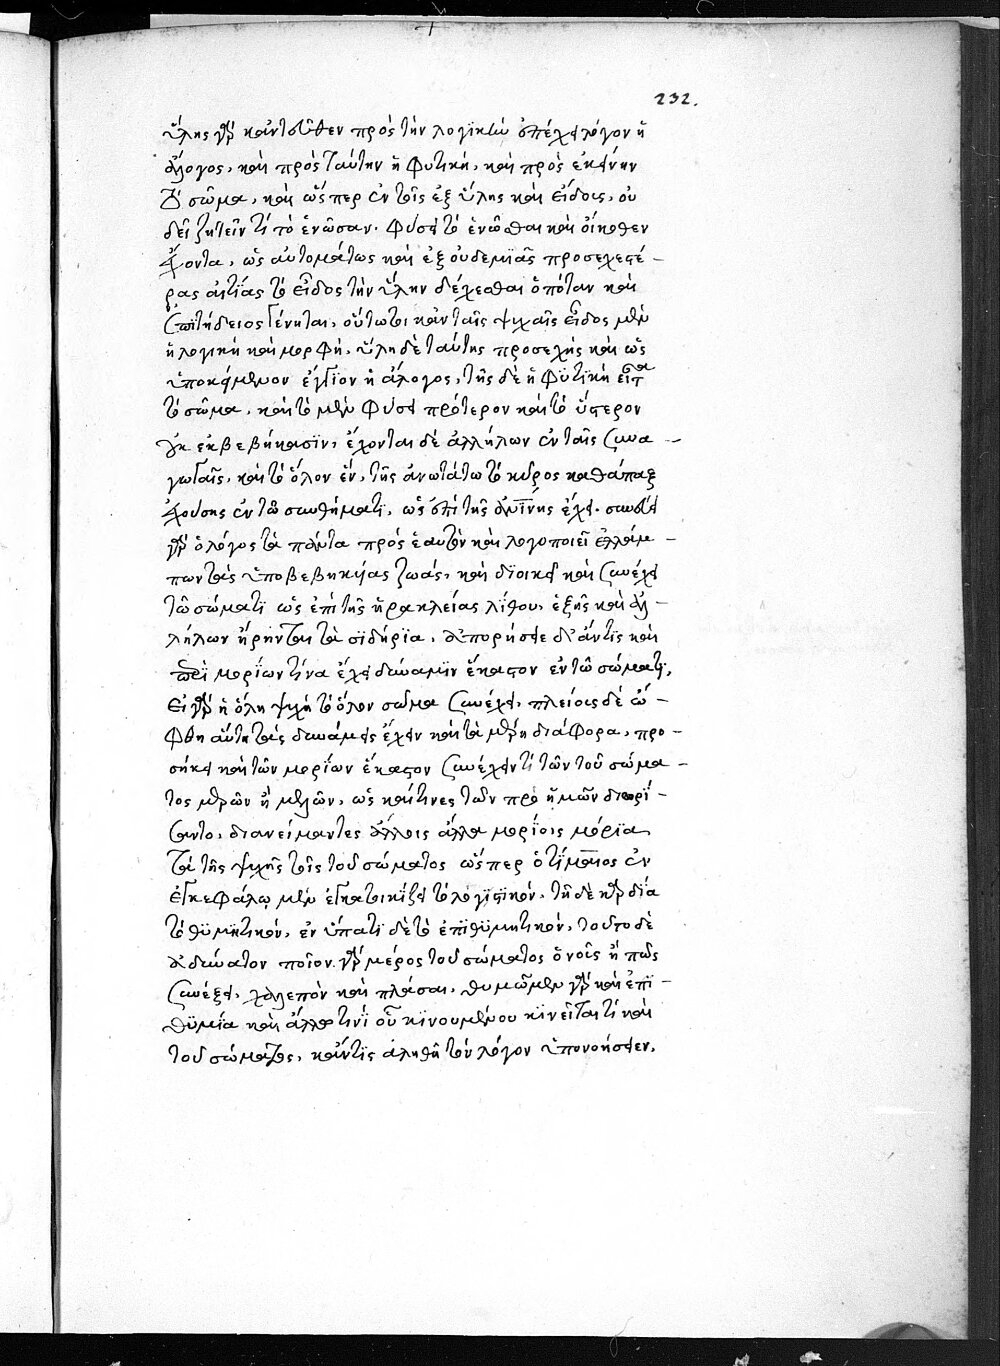 232.
ὕλης γὰρ κἀνταῦθεν πρὸς τὴν λογικὴν ἐπέχει λόγον ἡ
ἄλογος, καὶ πρὸς ταύτην ἡ φυτικὴ, καὶ πρὸς ἐκείνην
τὸ σῶμα, καὶ ὥσπερ ἐν τοῖς ἐξ ὕλης καὶ εἴδους, οὐ
δεῖ ζητεῖν τί τὸ ἑνῶσαν. φύσει τὸ ἑνῶσθαι καὶ οἴκοθεν
ἔχοντα, ὡς αὐτομάτως καὶ ἐξ οὐδεμϊᾶς προσεχεστέ-
ρας αἰτίας τὸ εἶδος τὴν ὕλην δέχεσθαι ὁπόταν καὶ
ἐπιτήδειος γένηται, οὕτωσι κἀν ταῖς ψυχαῖς εἶδος μὲν
ἡ λογικὴ καὶ μορφὴ, ὕλη δὲ ταύτης προσεχὴς καὶ ὡς
ὑποκείμενον ἔγγϊον ἡ ἄλογος, τῆς δὲ ἡ φϋτϊκὴ εἶτα
τὸ σῶμα, καὶ τὸ μὲν φύσει πρότερον καὶ τὸ ὕστερον
οὐκ ἐκβεβήκασϊν, ἔχονται δὲ ἀλλήλων ἐν ταῖς συνα-
γωγαῖς, καὶ τὸ ὅλον ἓν, τῆς ἀνωτάτω τὸ κῦρος καθάπαξ
ἐχούσης ἐν τῶ συνθήματϊ, ὡς ἐπὶ τῆς ἔχει.
γὰρ ὁ λόγος τὰ πάντα πρὸς ἑαυτὸν καὶ λογοποιεῖ ἐλλάμ-
πων τὰς ὑποβεβηκυίας ζωάς, καὶ δϊοικεῖ καὶ συνέχει
τῶ σώματϊ ὡς ἐπὶ τῆς ἡρακλείας λίθου, ἑξῆς καὶ ἀλ-
λήλων ἤρηνται τὰ σϊδήρϊα, ἀπορήσειε δ' ἄν τϊς καὶ
περὶ μορΐων τίνα ἔχει δύναμϊν ἕκαστον ἐν τῶ σώματϊ.
εἰ γὰρ ἡ ὅλη ψυχὴ τὸ ὅλον σῶμα συνέχει, πλείους δὲ ὤ-
φθη αὕτη τὰς δυνάμεις ἔχειν καὶ τὰ μέρη διάφορα, προ-
σήκει καὶ τῶν μορΐων ἕκαστον συνέχειν τὶ τῶν τοῦ σώμα-
τος μερῶν ἢ μελῶν, ὡς καί τινες τῶν πρὸ ἡμῶν διωρί-
σαντο, διανείμαντες ἄλλοις ἄλλα μορΐοις μόρϊα
τὰ τῆς ψυχῆς τοῖς τοῦ σώματος ὥσπερ ὁ τίμαιος ἐν
ἐγκεφάλῳ μὲν ἐγκατοικΐζει τὸ λογϊστϊκὸν, τῇ δὲ καρδία
τὸ θϋμϊτικὸν, ἐν ὕπατϊ δὲ τὸ ἐπϊθϋμητικόν, τοῦτο δὲ
ἀδύνατον ποῖον γὰρ μέρος τοῦ σώματος ὁ νοῦς ἢ πῶς
συνέξει, χαλεπὸν καὶ πλάσαι, θυμῶμεν γὰρ καὶ ἐπϊ-
θϋμία καὶ ἄλλο τινΐ οὗ κϊνουμένου κϊνεῖται τὶ καὶ
τοῦ σώματος, κἄν τϊς ἀληθῆ τὸν λόγον ὑπονοήσειεν,